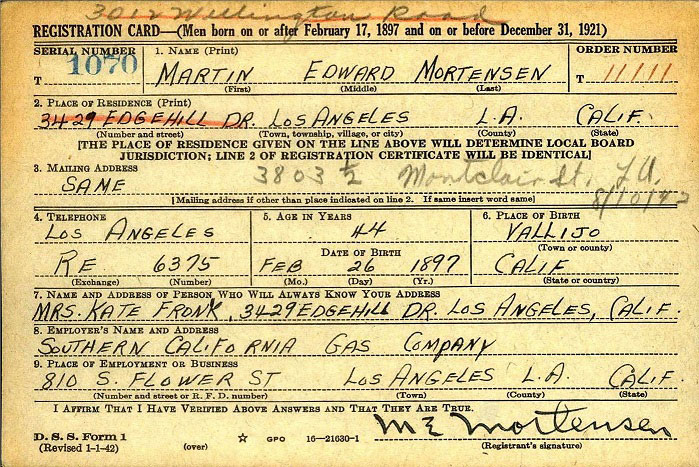 3012 Wellington Road
REGISTRATION CARD—(Men born on or after February 17, 1897 and on or before December 31, 1921)
SERIAL NUMBER 1. NAME (Print) ORDER NUMBER
T 1070 MARTIN EDWARD MORTENSEN T 11111
(First) (Middle) (Last)
2. PLACE OF RESIDENCE (Print)
3429 EDGEHILL DR. LOS ANGELES L.A. CALIF.
(Number and street) (Town, township, village, or city) (County) (State)
[THE PLACE OF RESIDENCE GIVEN ON THE LINE ABOVE WILL DETERMINE LOCAL BOARD
JURISDICTION; LINE 2 OF REGISTRATION CERTIFICATE WILL BE IDENTICAL]
3. MAILING ADDRESS
SAME 3803 1/2 Montclair St, L.A.
8/10/42
[Mailing address if other than place indicated on line 2. If same insert word same]
4. TELEPHONE 5. AGE IN YEARS 6. PLACE OF BIRTH
LOS ANGELES 44 VALLIJO
DATE OF BIRTH (Town or county)
RE 6375 FEB 26 1897 CALIF
(Exchange) (Number) (Mo.) (Day) (Yr.) (State or country)
7. NAME AND ADDRESS OF PERSON WHO WILL ALWAYS KNOW YOUR ADDRESS
MRS. KATE FRONK, 3429 EDGEHILL DR. LOS ANGELES, CALIF.
8. EMPLOYER'S NAME AND ADDRESS
SOUTHERN CALIFORNIA GAS COMPANY
9. PLACE OF EMPLOYMENT OR BUSINESS
810 S. FLOWER ST LOS ANGELES L.A. CALIF.
(Number and street or R. F. D. number) (Town) (County) (State)
I AFFIRM THAT I HAVE VERIFIED ABOVE ANSWERS AND THAT THEY ARE TRUE.
M E Mortensen
D. S. S. Form 1
(Revised 1-1-42) (over) ☆ GPO 16—21630-1 (Registrant's signature)